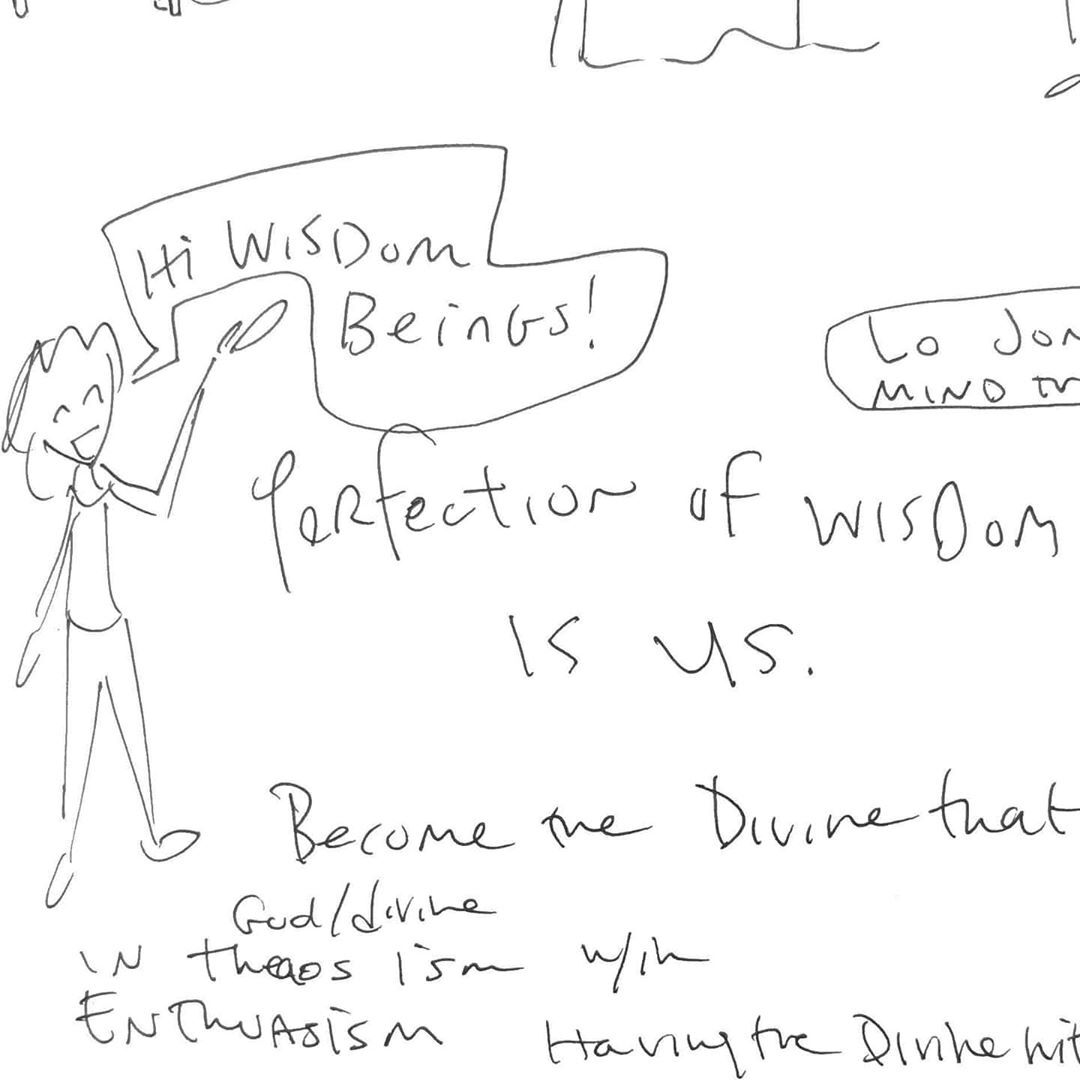 Hi WISDOM
BeinGs!
Lo Jon
MIND
PeRfection of WISDOM
IS US.
Become the Divine that
God/divine
IN theos ism w/in
ENThUASiSM
Having the Divine wit